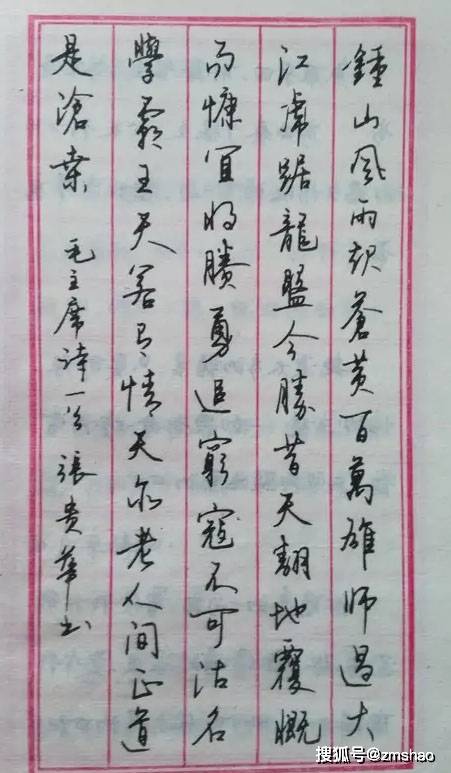 鍾山風雨起蒼黃百萬雄師過大
江虎踞龍盤今勝昔天翻地覆慨
而慷宜將賸勇追窮寇不可沽名
學霸王天若有情天亦老人間正道
是滄桒 毛主席詩一首 張貴華书
搜狐号@zmshao